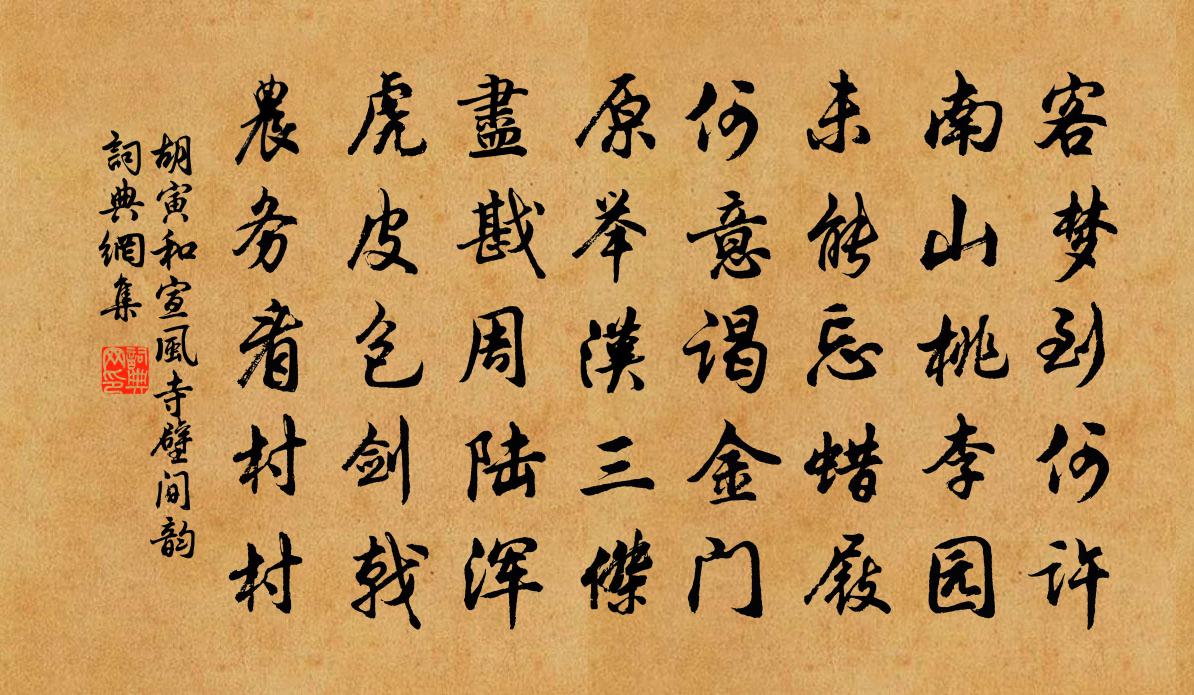 客梦到何许
南山桃李园
未能忘蜡屐
何意谒金门
原举汉三傑
盡戡周陆浑
虎皮包剑戟
農务看村村
胡寅和宣風寺壁间韵
詞典網集
詞典网印